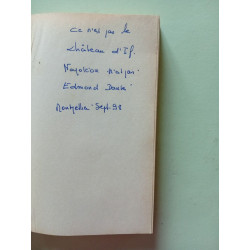 ce n'est pas le
château d'If.
Napoléon n'est pas
Edmond Dantès
Montpellier Sept. 98